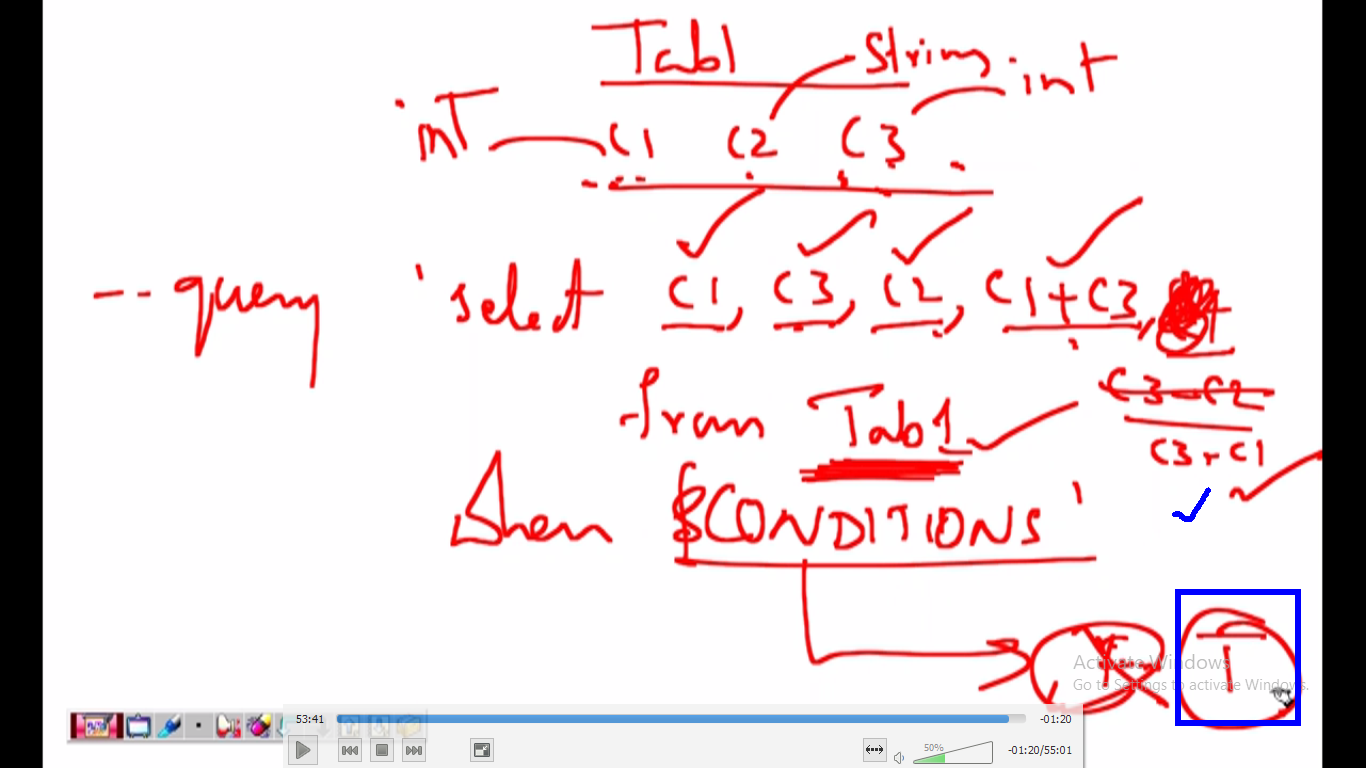 Tab1
String int
int C1 C2 C3
-- query 'select C1, C3, C2, C1+C3,
from Tab1 C3-C2
C3-C1
when $CONDITIONS'
T
Activate Windows
Go to Settings to activate Windows.
53:41 -01:20
50% -01:20/55:01